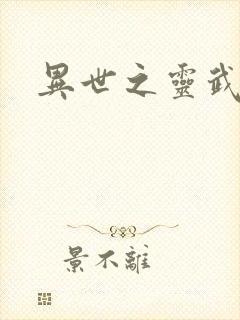 異世之靈武
景不離